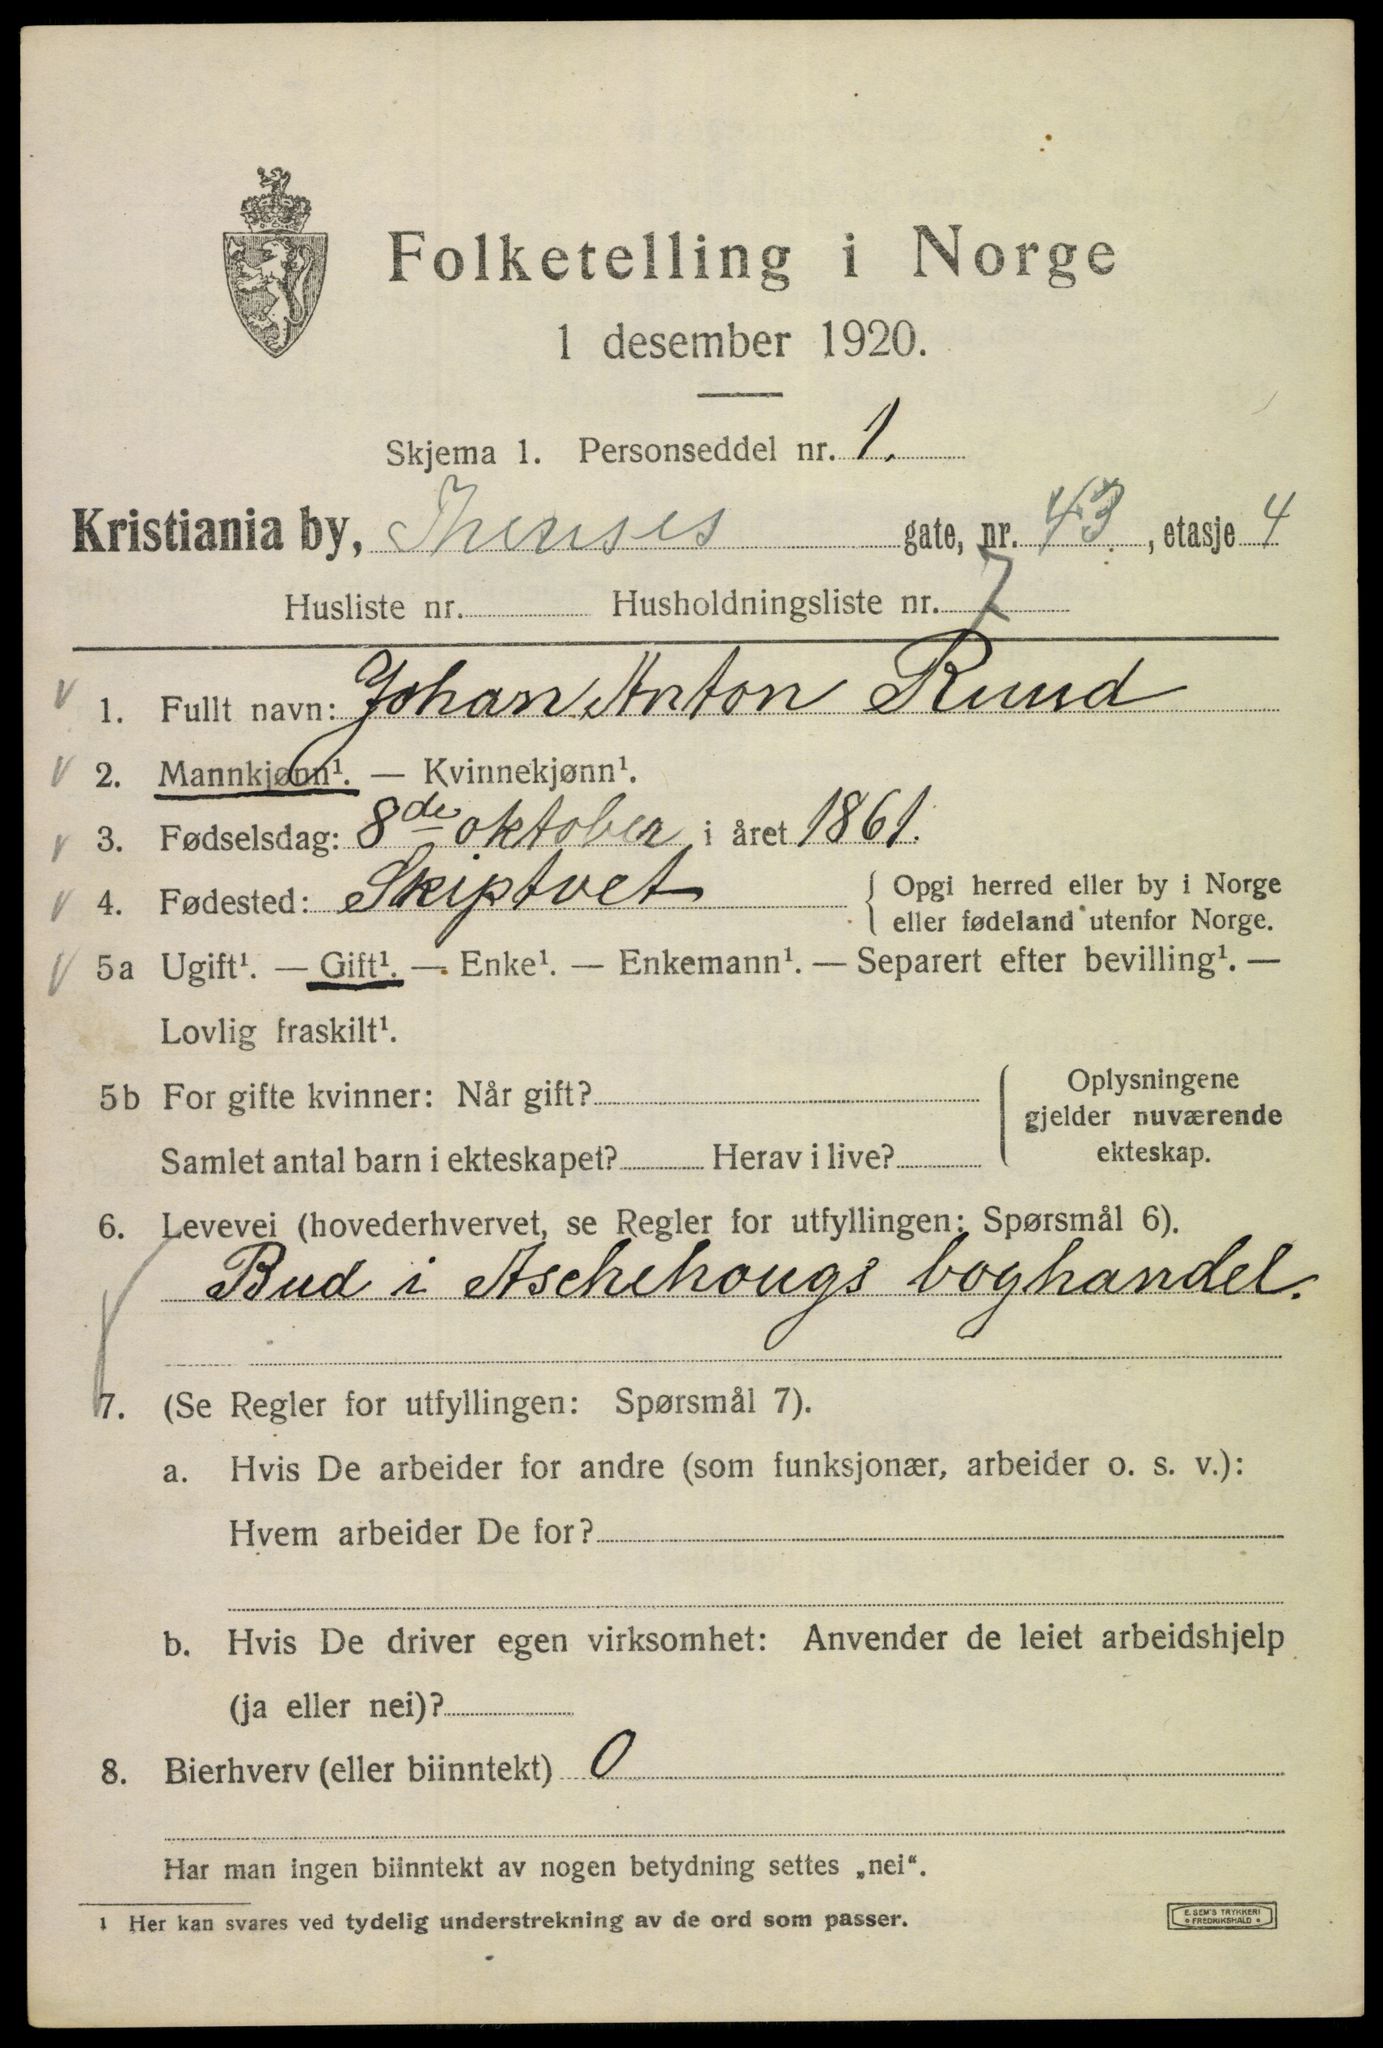 Folketelling i Norge
1 desember 1920.
Skjema 1. Personseddel nr. 1.
Kristiania by, Thereses gate, nr. 43, etasje 4
Husliste nr. Husholdningsliste nr. 7
1. Fullt navn: Johan Anton Ruud
2. Mannkjønn¹. — Kvinnekjønn¹.
3. Fødselsdag: 8de oktober i året 1861.
4. Fødested: Skiptvet { Opgi herred eller by i Norge
eller fødeland utenfor Norge.
5a Ugift¹. — Gift¹. — Enke¹. — Enkemann¹. — Separert efter bevilling¹. —
Lovlig fraskilt¹.
5b For gifte kvinner: Når gift?
Samlet antal barn i ekteskapet? Herav i live?
Oplysningene
gjelder nuværende
ekteskap.
6. Levevei (hovederhvervet, se Regler for utfyllingen: Spørsmål 6).
Bud i Aschehougs boghandel.
7. (Se Regler for utfyllingen: Spørsmål 7).
a. Hvis De arbeider for andre (som funksjonær, arbeider o. s. v.):
Hvem arbeider De for?
b. Hvis De driver egen virksomhet: Anvender de leiet arbeidshjelp
(ja eller nei)?
8. Bierhverv (eller biinntekt) 0
Har man ingen biinntekt av nogen betydning settes „nei“.
¹ Her kan svares ved tydelig understrekning av de ord som passer.
E. SEM'S TRYKKERI
FREDRIKSHALD